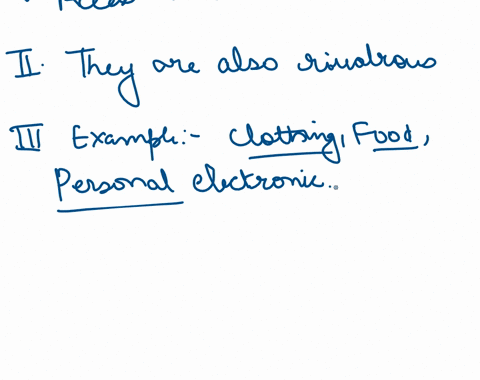 II. They are also rivalrous
III Example:- Clothing, Food,
Personal electronic..